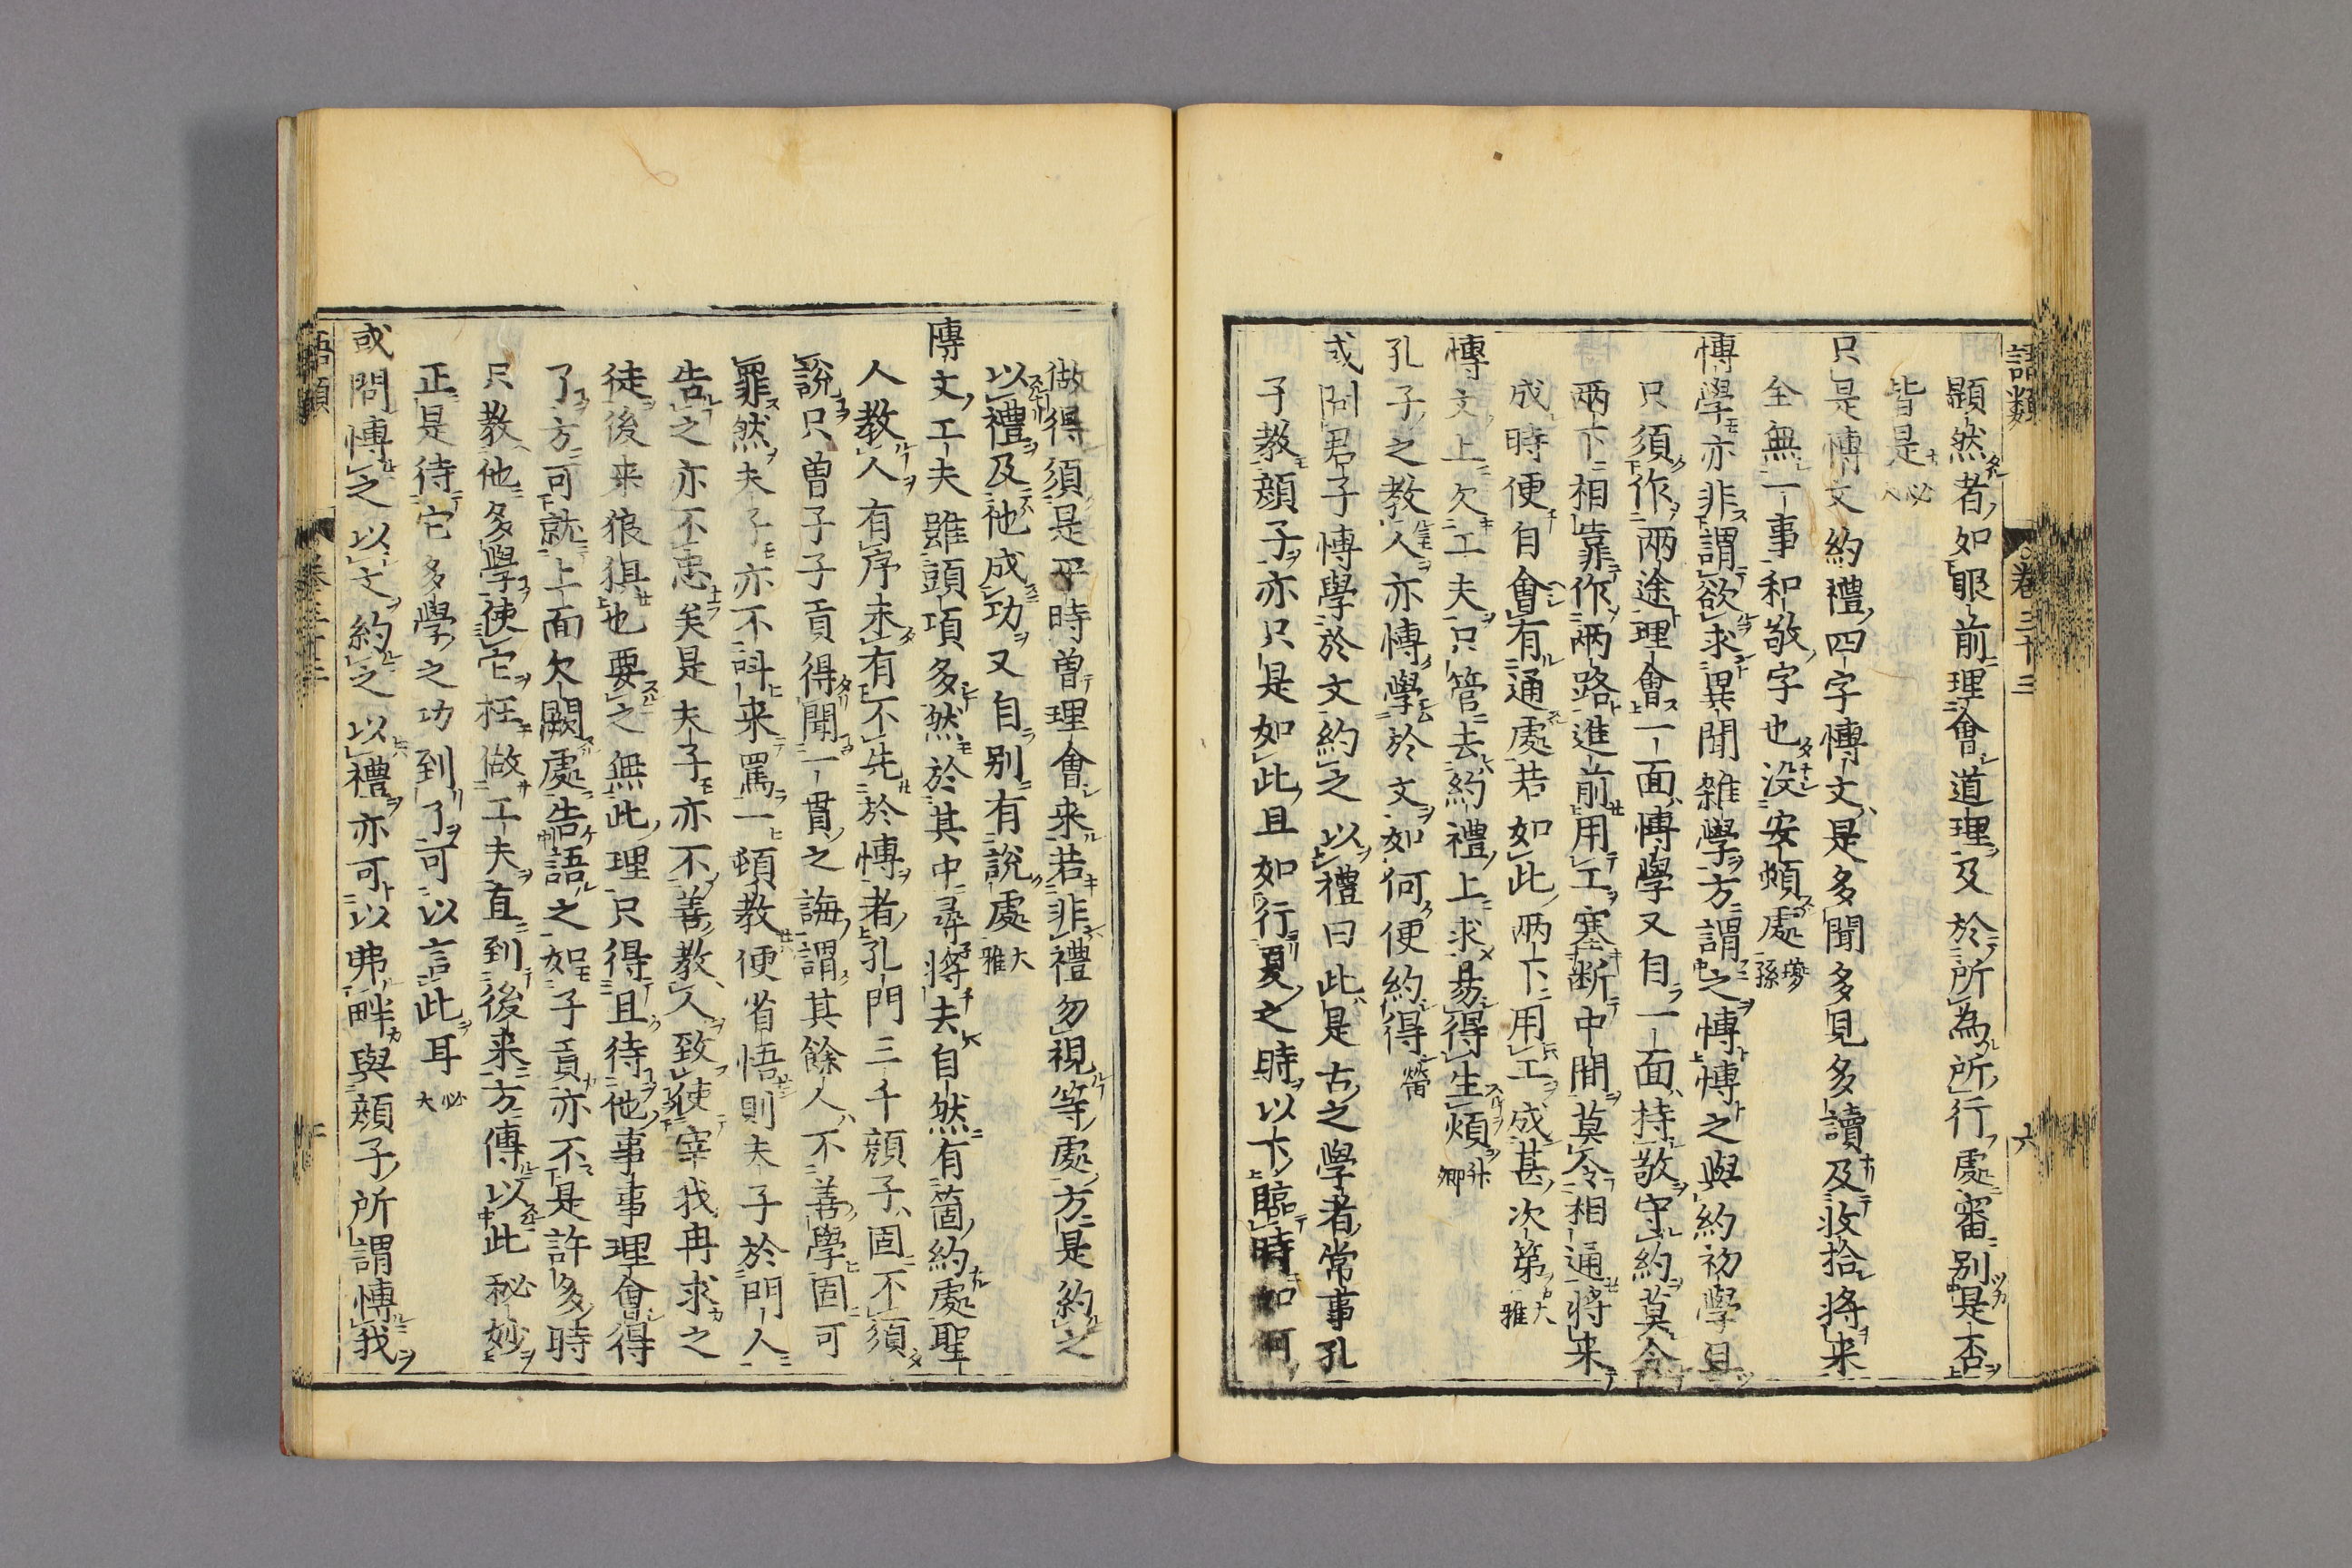 語類 卷三十三 六
顯然者如眼前理會道理及於所為所行處審別是否
皆是 必大
只是博文約禮四字博文是多聞多見多讀及收拾將来
全無一事和敬字也没安頓處 夔孫
博學亦非謂欲求異聞雜學方謂之博博之與約初學且
只須作兩途理會一面博學又自一面持敬守約莫令
兩下相靠作兩路進前用工塞断中間莫令相通將来
成時便自會有通處若如此兩下用工成甚次第 大雅
博文上欠工夫只管去約禮上求易得生煩 升卿
孔子之教人亦博學於文如何便約得 㽦
或問君子博學於文約之以禮曰此是古之學者常事孔
子教顔子亦只是如此且如行夏之時以下臨時如何
做得須是平時曽理會来若非禮勿視等處方是約之
以禮及他成功又自别有說處 大雅
博文工夫雖頭項多然於其中尋將去自然有箇約處聖
人教人有序未有不先於博者孔門三千顔子固不須
說只曽子子貢得聞一貫之誨謂其餘人不善學固可
罪然夫子亦不叫来罵一頓教便省悟則夫子於門人
告之亦不忠矣是夫子亦不善教人致使宰我冉求之
徒後来狼狽也要之無此理只得且待他事事理會得
了方可就上面欠闕處告語之如子貢亦不是許多時
只教他多學使它枉做工夫直到後来方傳以此秘妙
正是待它多學之功到了可以言此耳 必大
或問博之以文約之以禮亦可以弗畔與顔子所謂博我
語類 卷三十三